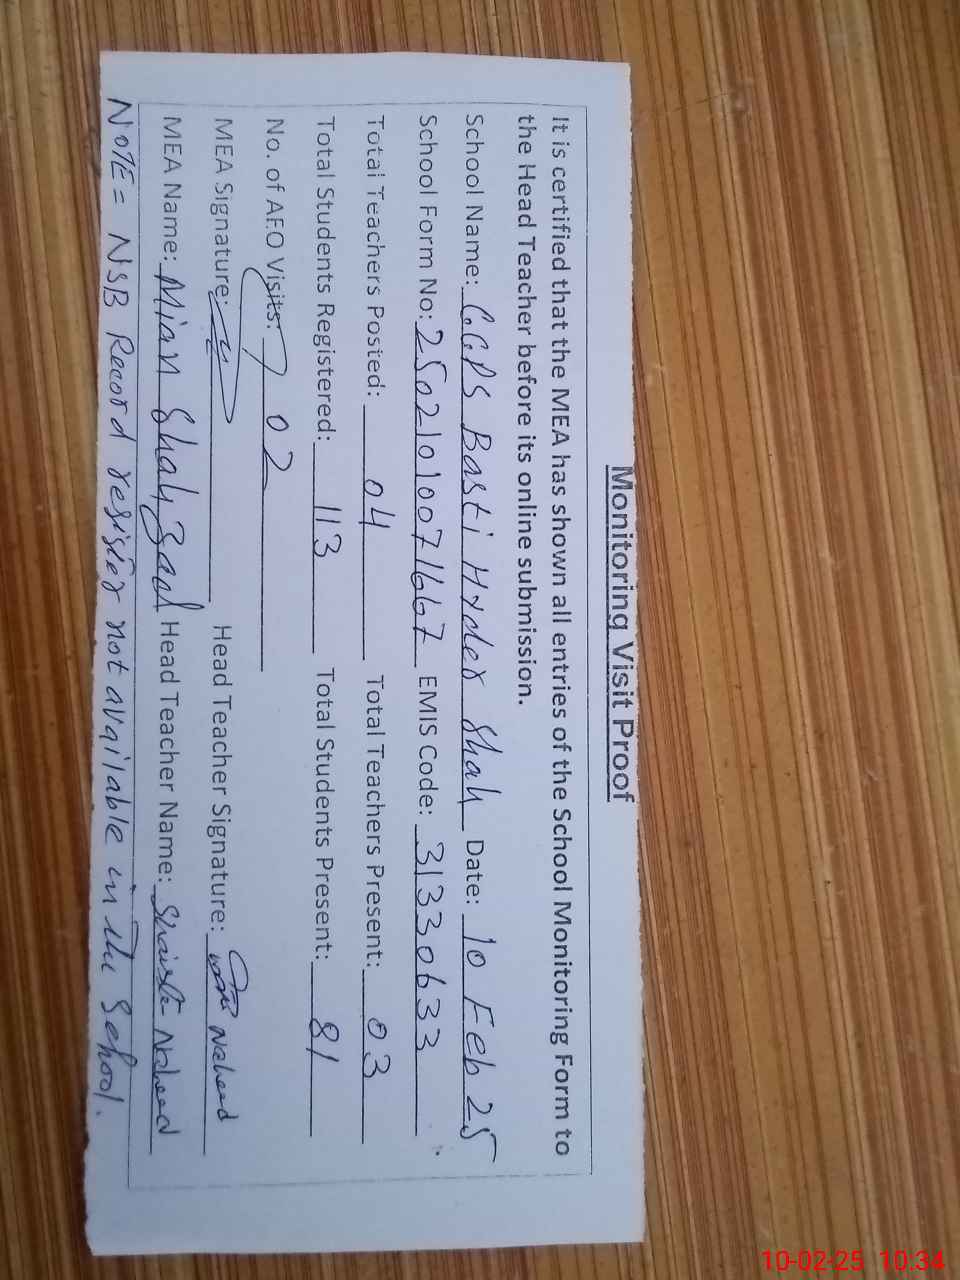 Monitoring Visit Proof
It is certified that the MEA has shown all entries of the School Monitoring Form to
the Head Teacher before its online submission.
School Name: G.G.P.S Basti Hyder Shah Date: 10 Feb 25
School Form No: 25021010071667 EMIS Code: 31330633
Total Teachers Posted: 04 Total Teachers Present: 03
Total Students Registered: 113 Total Students Present: 81
No. of AEO Visits: 02
MEA Signature: Head Teacher Signature: Naheed
MEA Name: Mian Shahzad Head Teacher Name: Shaista Naheed
NOTE= NSB Record resister not available in the School.
10-02-25 10:34